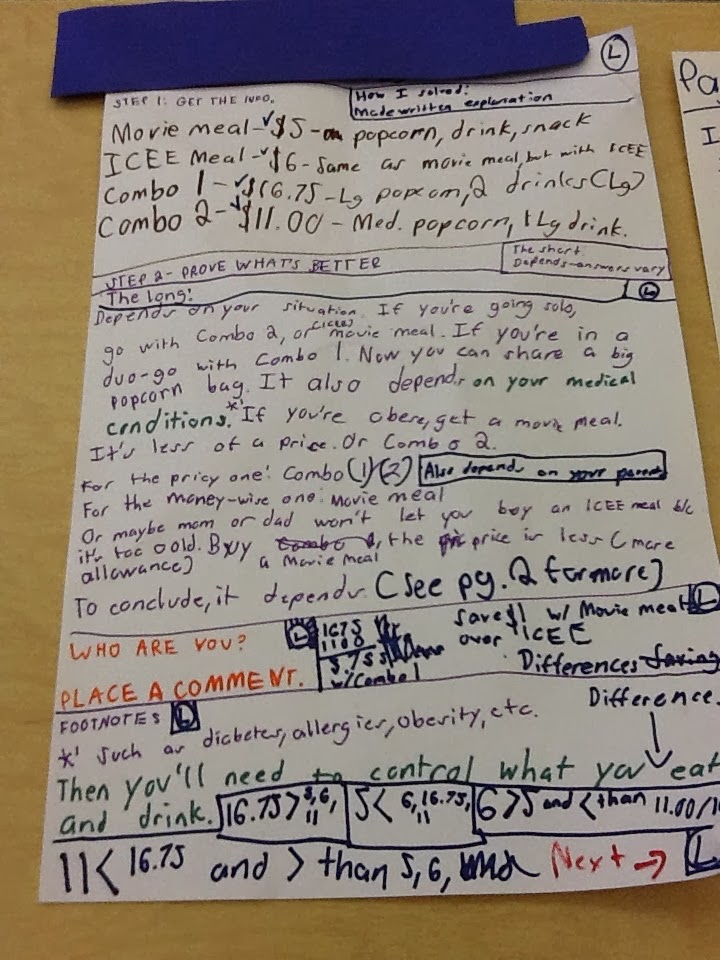 L
STEP 1: GET THE INFO.
How I solved:
Made written explanation
Movie meal-✓$5- popcorn, drink, snack
ICEE Meal-✓$6- Same as movie meal, but with ICEE
Combo 1-✓$16.75-Lg popcorn, 2 drinks (Lg)
Combo 2-✓$11.00- Med. popcorn, 1 Lg drink.
STEP 2- PROVE WHAT'S BETTER
The short:
Depends-answers vary
The long:
L
Depends on your situation. If you're going solo,
go with Combo 2, or (ICEE) movie meal. If you're in a
duo-go with Combo 1. Now you can share a big
popcorn bag. It also depends on your medical
conditions.*¹ If you're obese, get a movie meal.
It's less of a price. Or Combo 2.
For the pricy one: Combo (1)(2)
Also depends on your parents
For the money-wise one: Movie meal
Or maybe mom or dad won't let you boy an ICEE meal b/c
it's too cold. Buy a Movie meal, the price is less (more
allowance)
To conclude, it depends. (See pg. 2 for more)
WHO ARE YOU?
PLACE A COMMENT.
L
16.75
11.00
5.75
w/Combo 1
save $1 w/ Movie meal
over ICEE
L
Differences Saving
Difference.
FOOTNOTES L
*¹ Such as diabetes, allergies, obesity, etc.
Then you'll need to control what you eat
and drink.
16.75> 5,6, 11
5< 6,16.75, 11
6>5 and <than 11.00/
11< 16.75 and > than 5, 6,
Next →
L
Pa
I